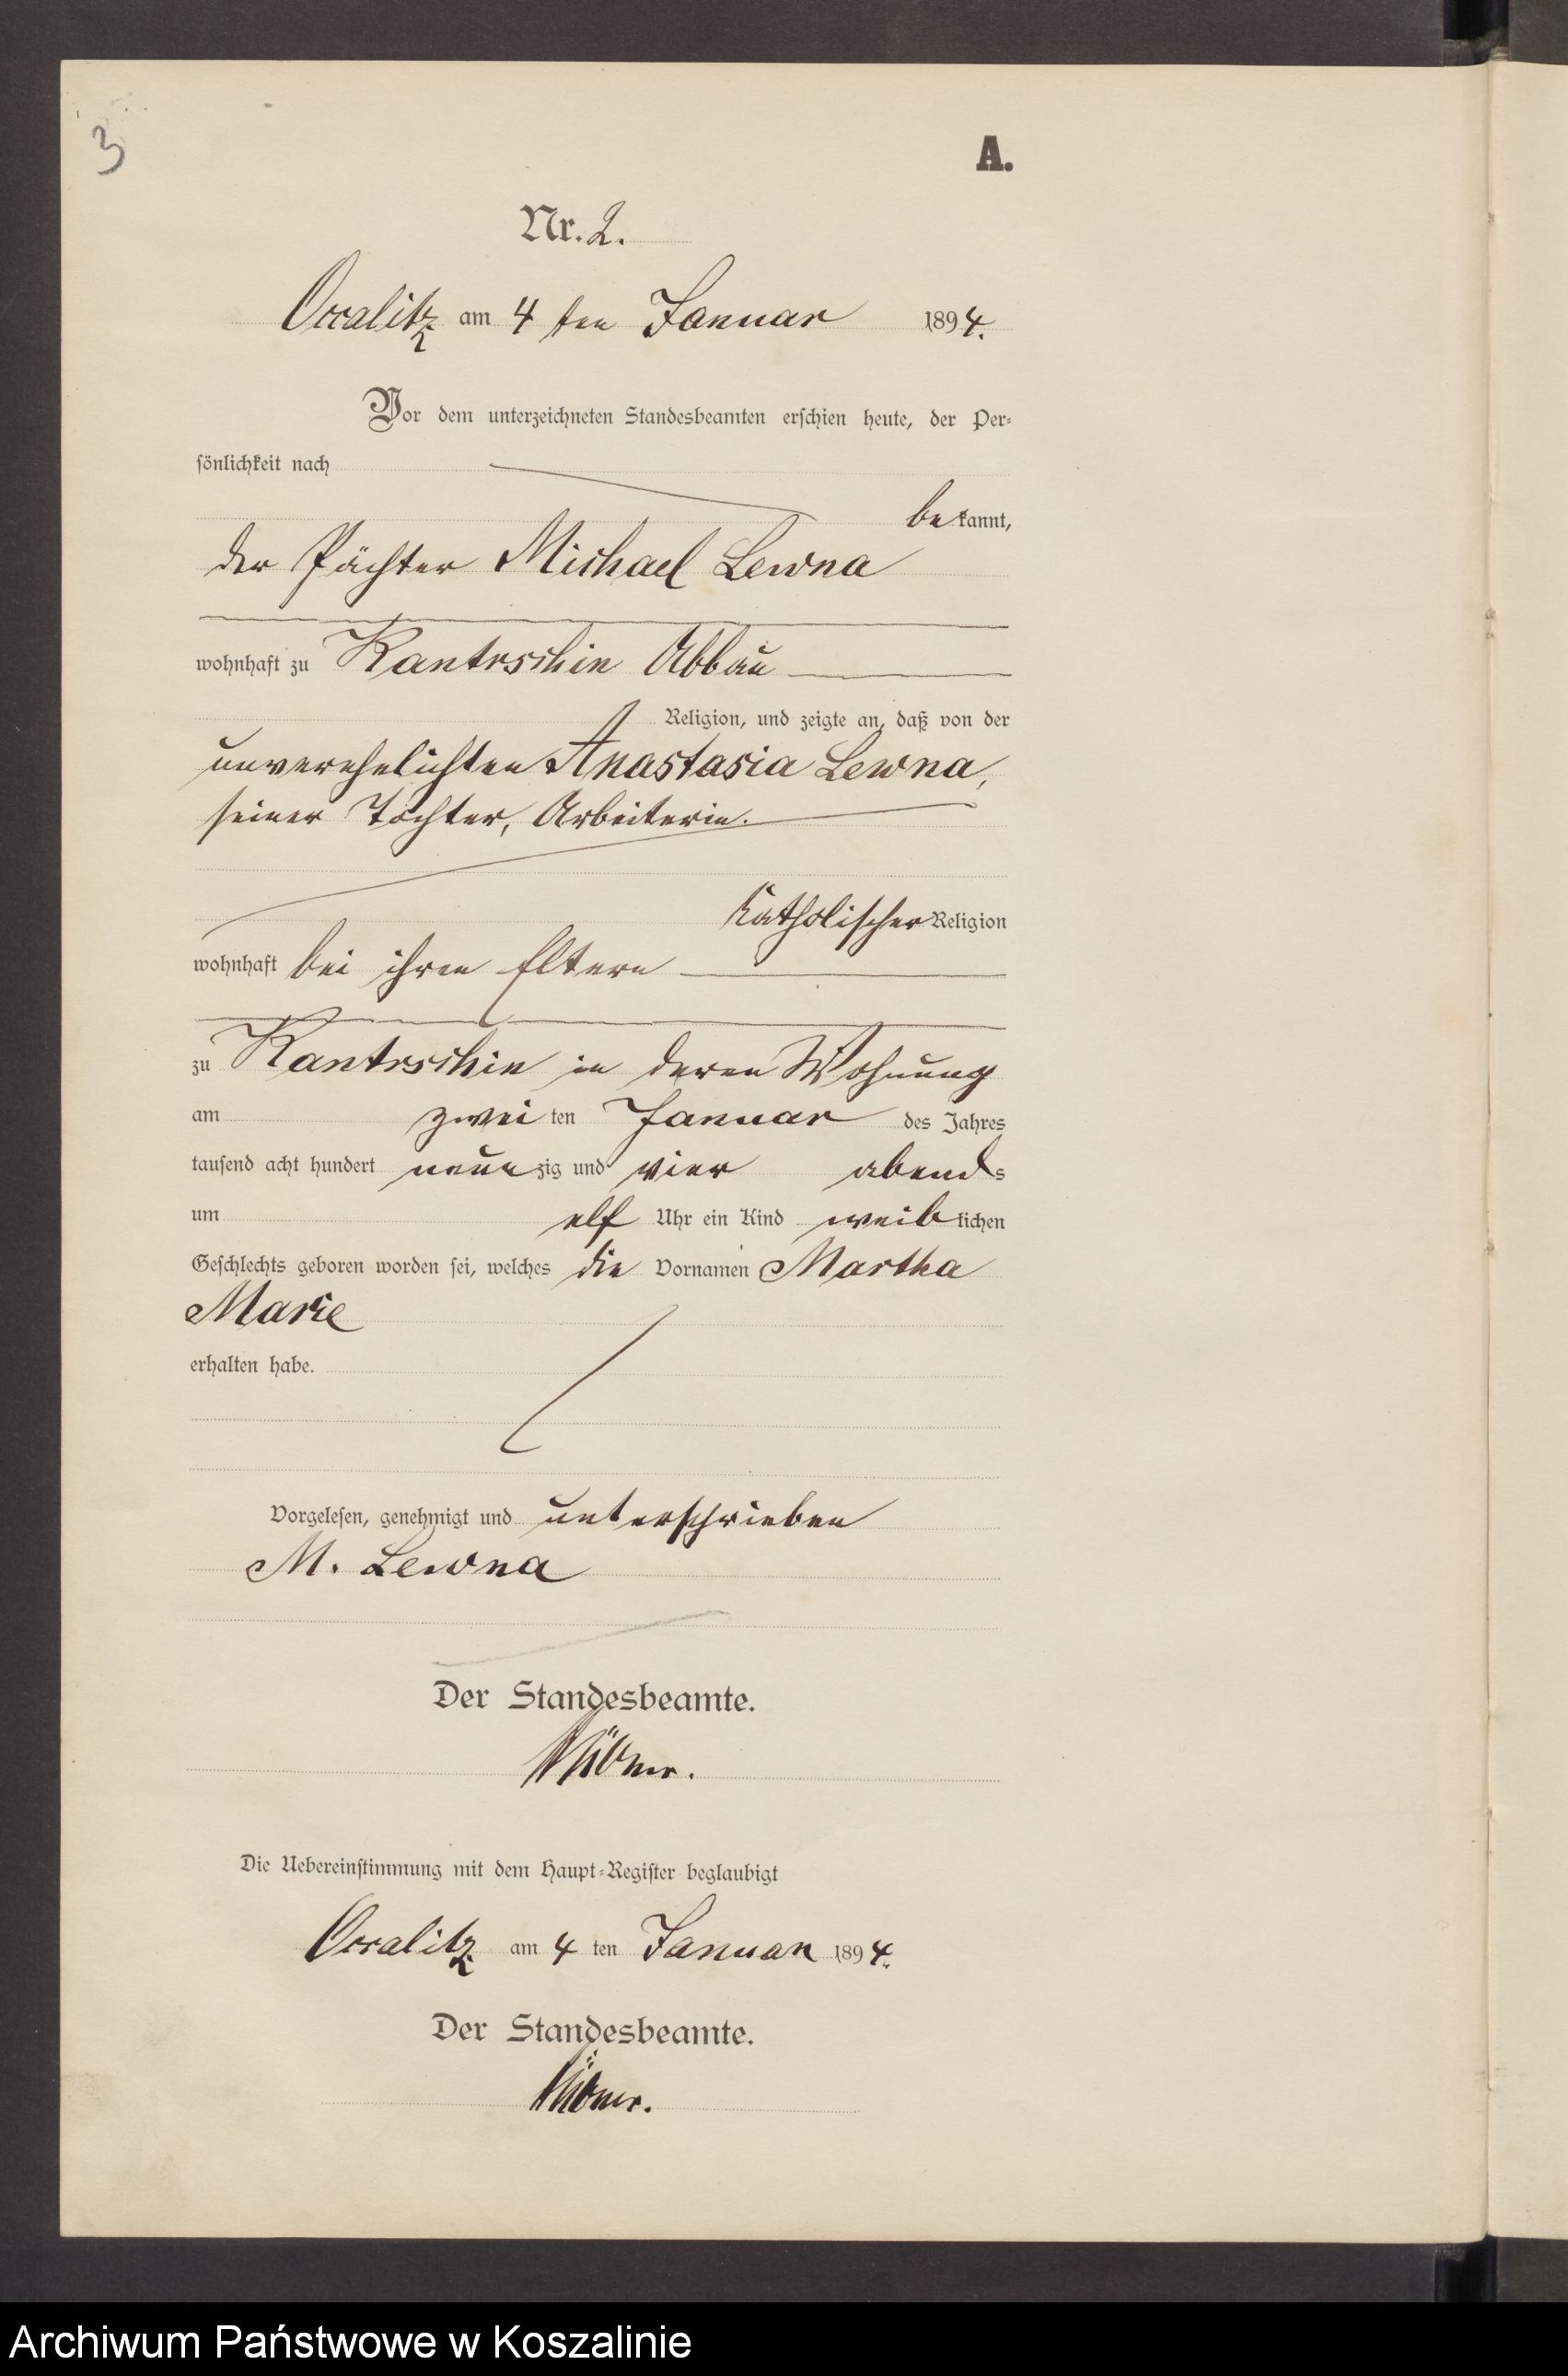 3
A.
Nr. 2.
Occalitz am 4 ten Januar 1894.
Vor dem unterzeichneten Standesbeamten erschien heute, der Per-
sönlichkeit nach
bekannt,
der Pächter Michael Lewna
wohnhaft zu Kantrschin Abbau
Religion, und zeigte an, daß von der
unverehelichten Anastasia Lewna,
seiner Tochter, Arbeiterin.
katholischer Religion
wohnhaft bei ihren Eltern
zu Kantrschin in deren Wohnung
am zweiten Januar des Jahres
tausend acht hundert neunzig und vier abends
um elf Uhr ein Kind weiblichen
Geschlechts geboren worden sei, welches die Vornamen Martha
Marie
erhalten habe.
Vorgelesen, genehmigt und unterschrieben
M. Lewna
Der Standesbeamte.
Die Uebereinstimmung mit dem Haupt-Register beglaubigt
Occalitz am 4 ten Januar 1894.
Der Standesbeamte.
Archiwum Państwowe w Koszalinie